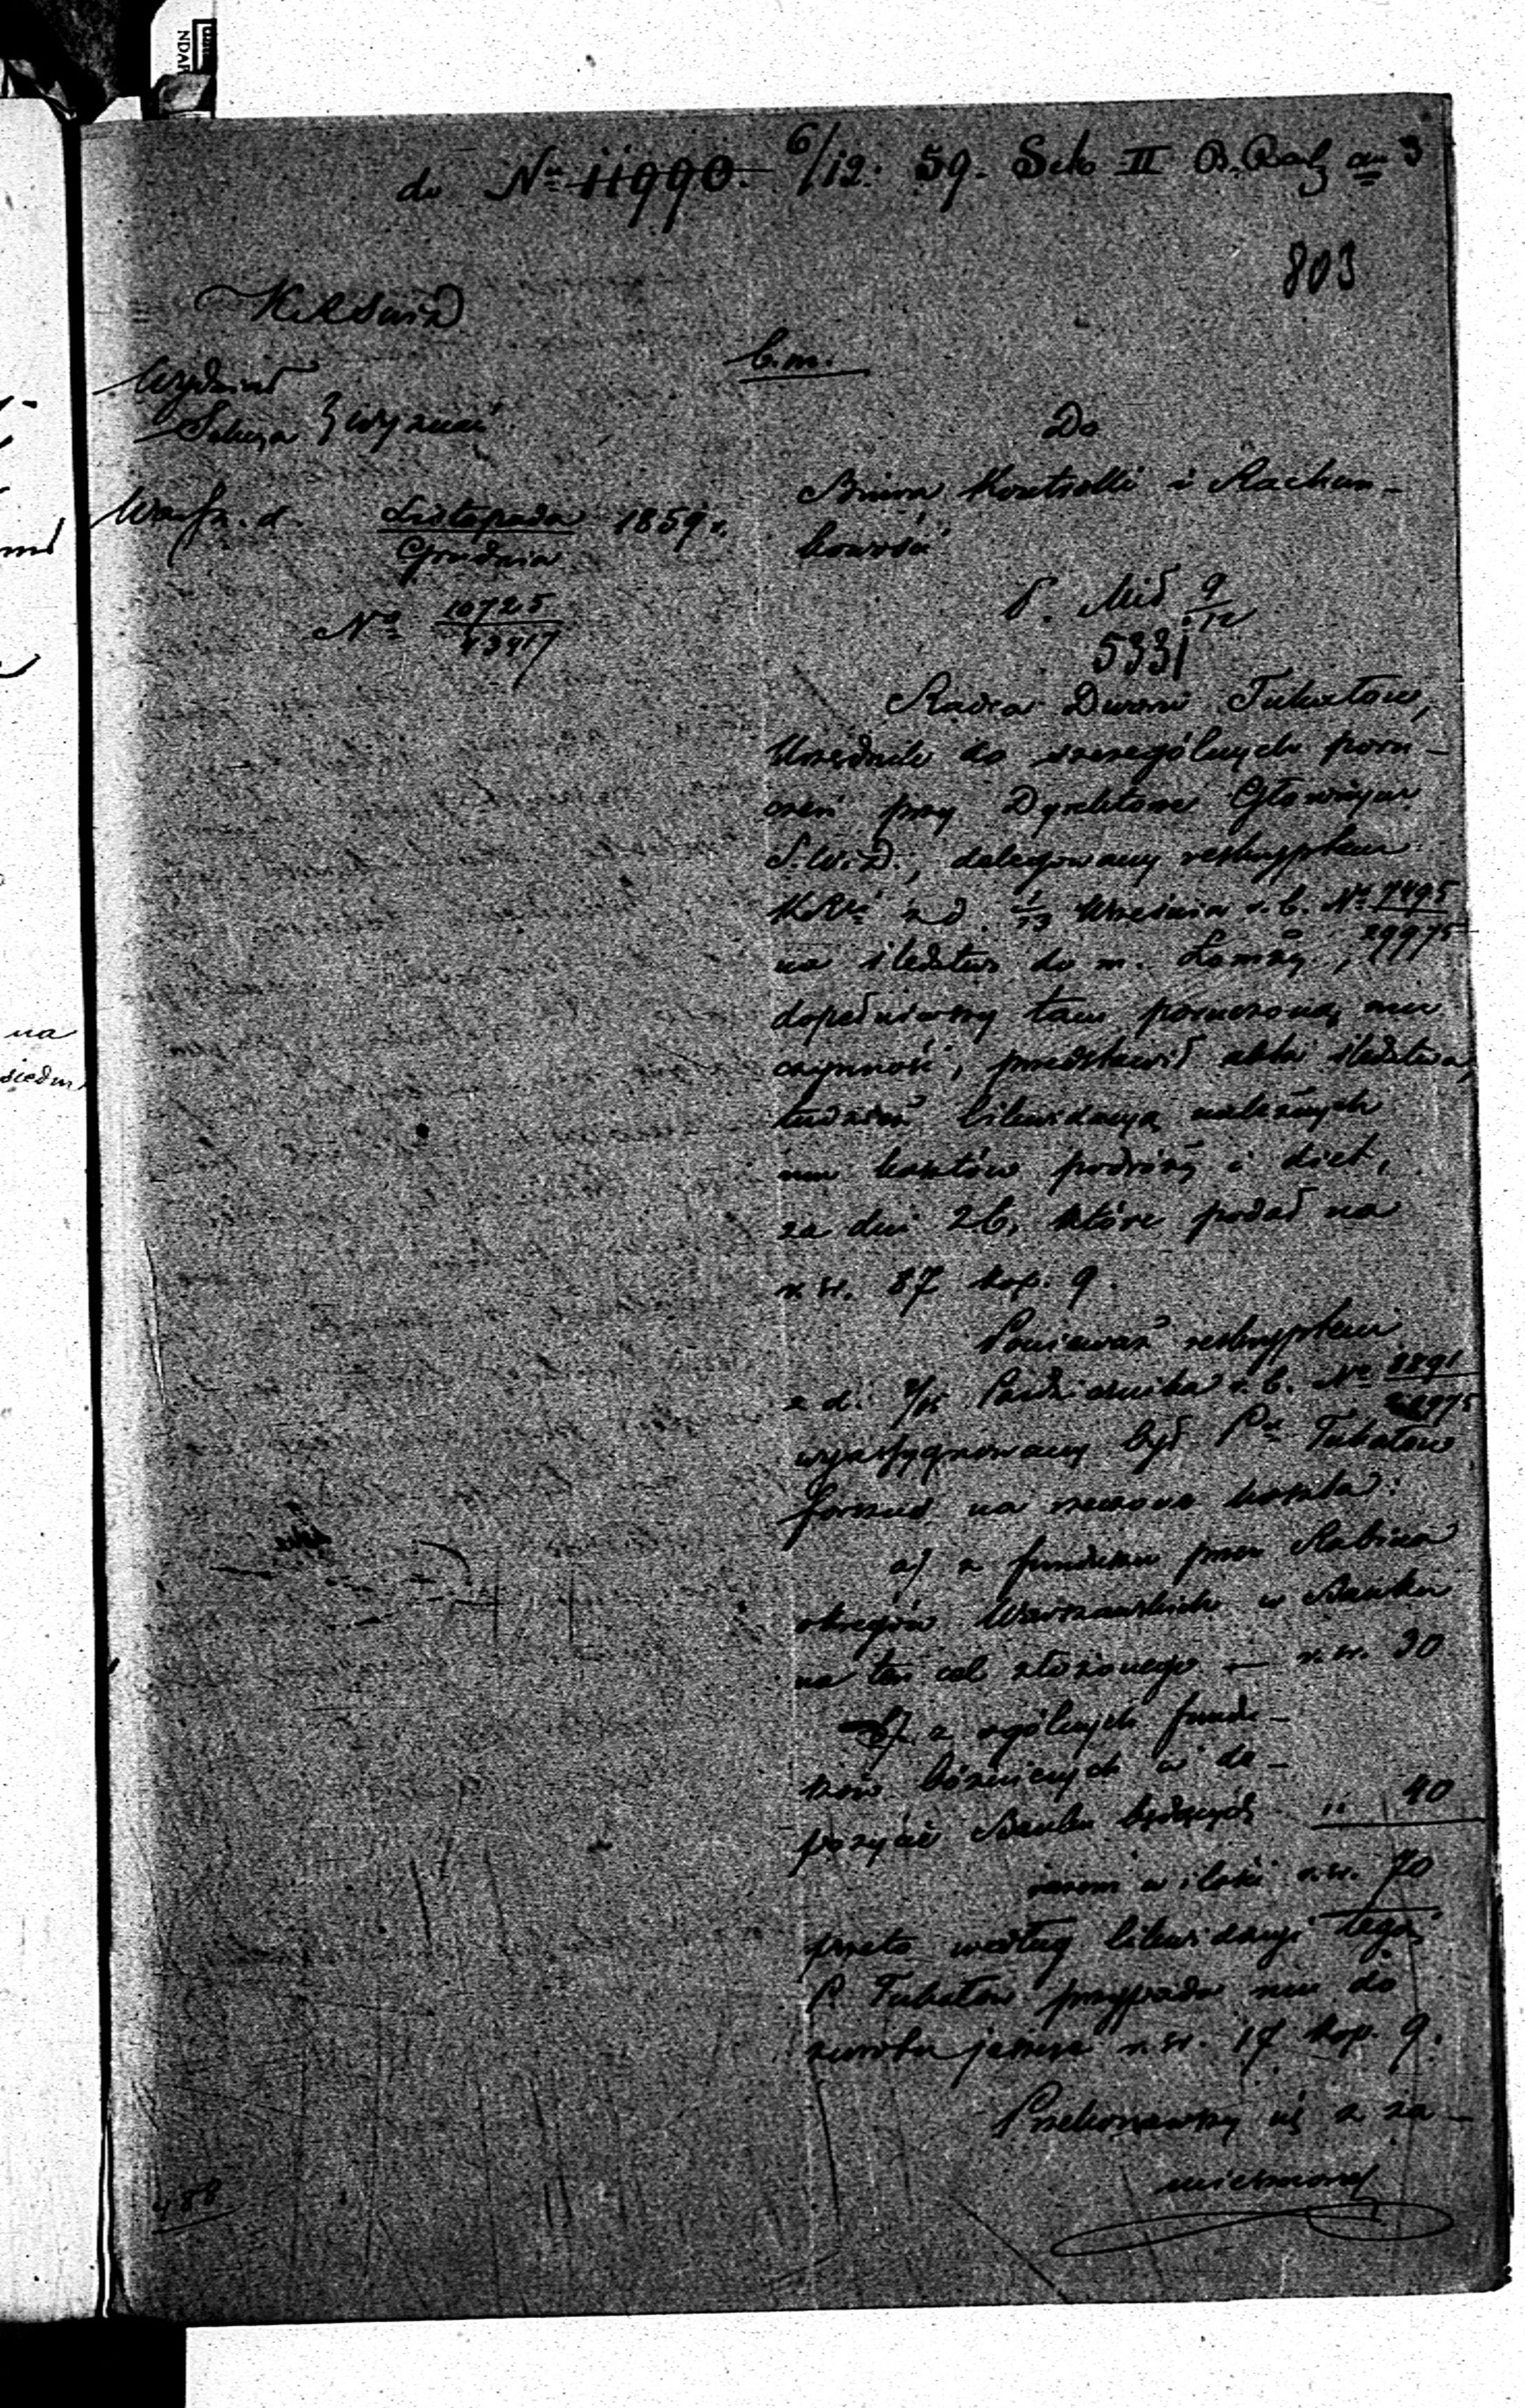 do No 11990. 6/12. 59. Sek II
803
KRSWiD
b.m.
Wydział
Sekcya } Wyznań
Do
Biura Kontrolli i Rachun-
kowości
Warsz. d. Listopada 1859 r.
Grudnia
No 10725
43417
P. Mił 9/12
5331
Radca Dworu Tukałow,
Urzędnik do szczególnych poru-
czeń przy Dyrektorze Głównym
S.W.D., delegowany reskryptem
KRz d. 1/13 Września r.b. No 7495
29975
na śledztwo do m. Łomży,
dopełniwszy tam poruczoną mu
czynność, przedstawił akta śledztwa,
tudzież likwidacyą należnych
mu kosztów podróży i diet,
za dni 26, które podał na
r.sr. 87 kop. 9.
Ponieważ reskryptem
z d. Października r.b. No 8891
wyasygnowany był Pu Tukałow
forszus na rzeczone koszta:
a/ z funduszu przez Rabina
okręgów Warszawskich w Banku
na ten cel złożonego — r.sr. 30
b/ z ogólnych fundu-
szów bóżniczych w de-
pozycie Banku będących " 40
razem w ilości r.sr. 70
przeto według likwidacyi tegoż
P. Tukałow przypada mu do
zwrotu jeszcze r.sr. 17 kop. 9.
Przekonawszy się z za-
mierzonej
488
na
siedm